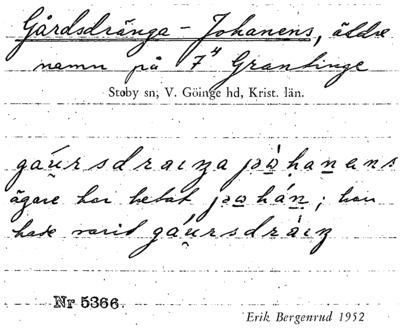 Gårdsdränga-Johanens, äldre
namn på 7⁴ Grantinge
Stoby sn; V. Göinge hd, Krist. län.
gáursdraiŋa jəẁhanens
ägare har hetat jəhán; han
hade varit gáursdràiŋ
Nr 5366.
Erik Bergenrud 1952